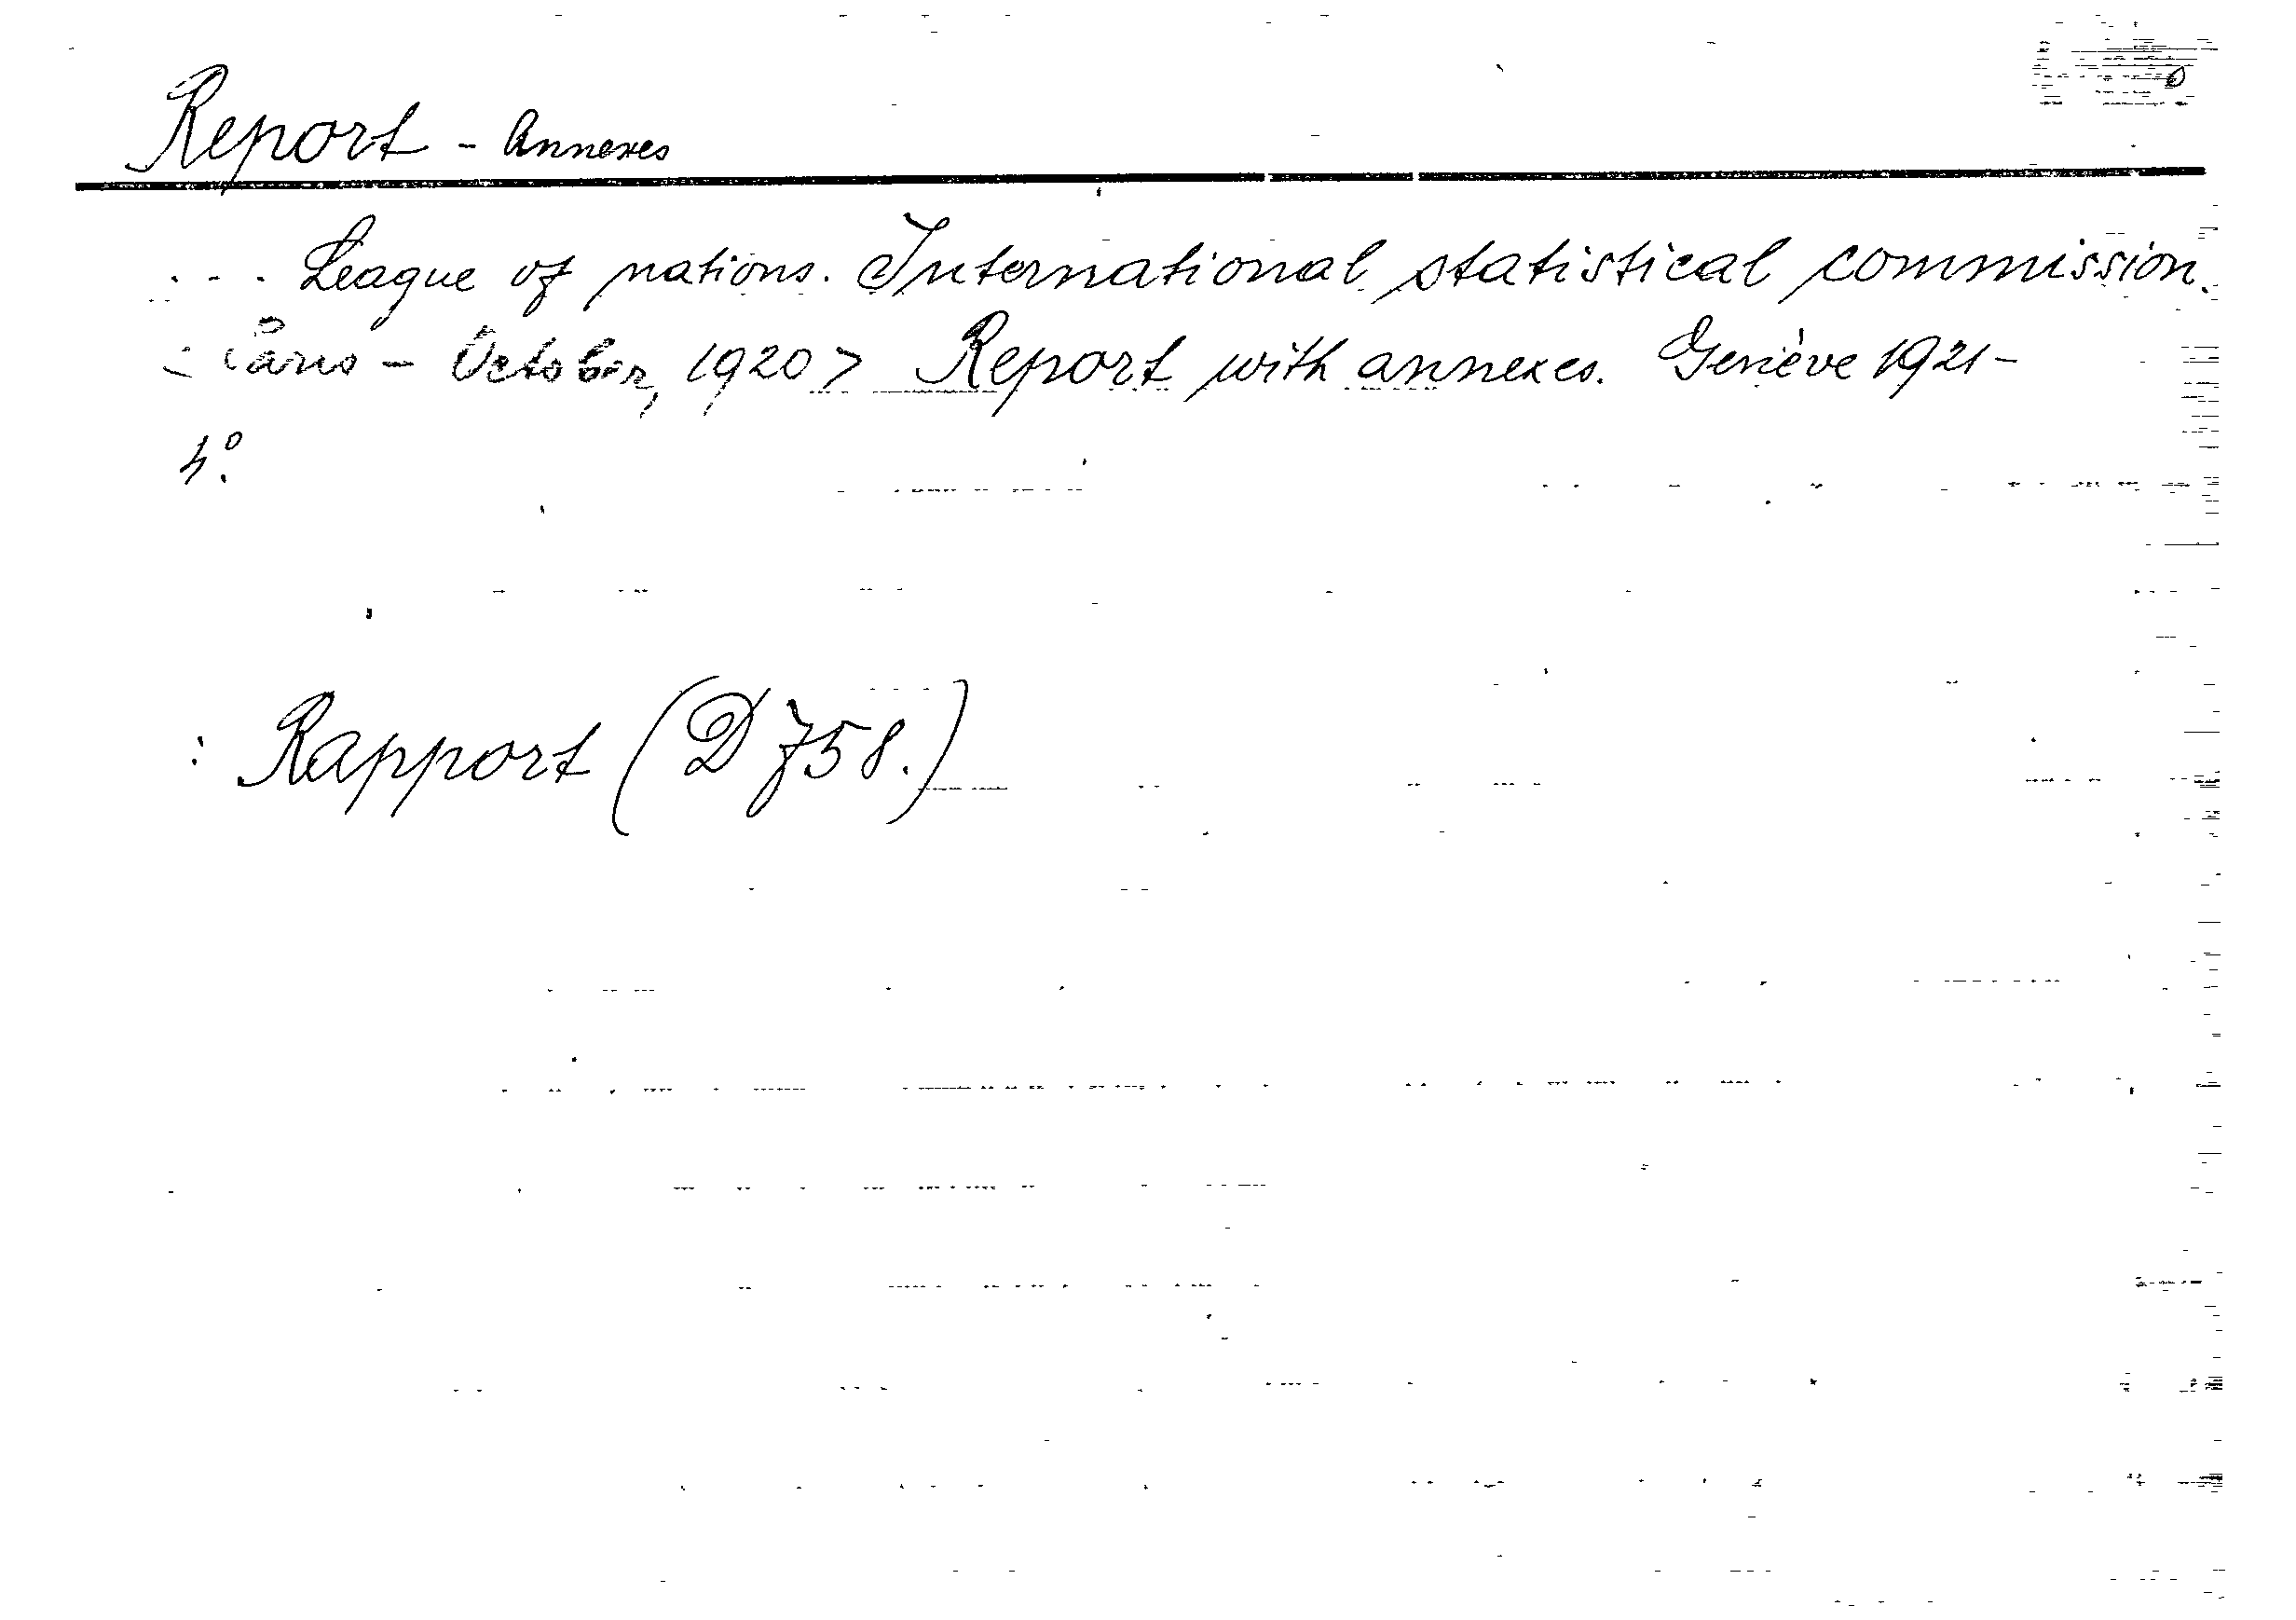 Report - Annexes
... League of nations. International statistical commission.
< Paris - October, 1920 > Report with annexes. Genève 1921-
4°.
: Rapport (D 758.)